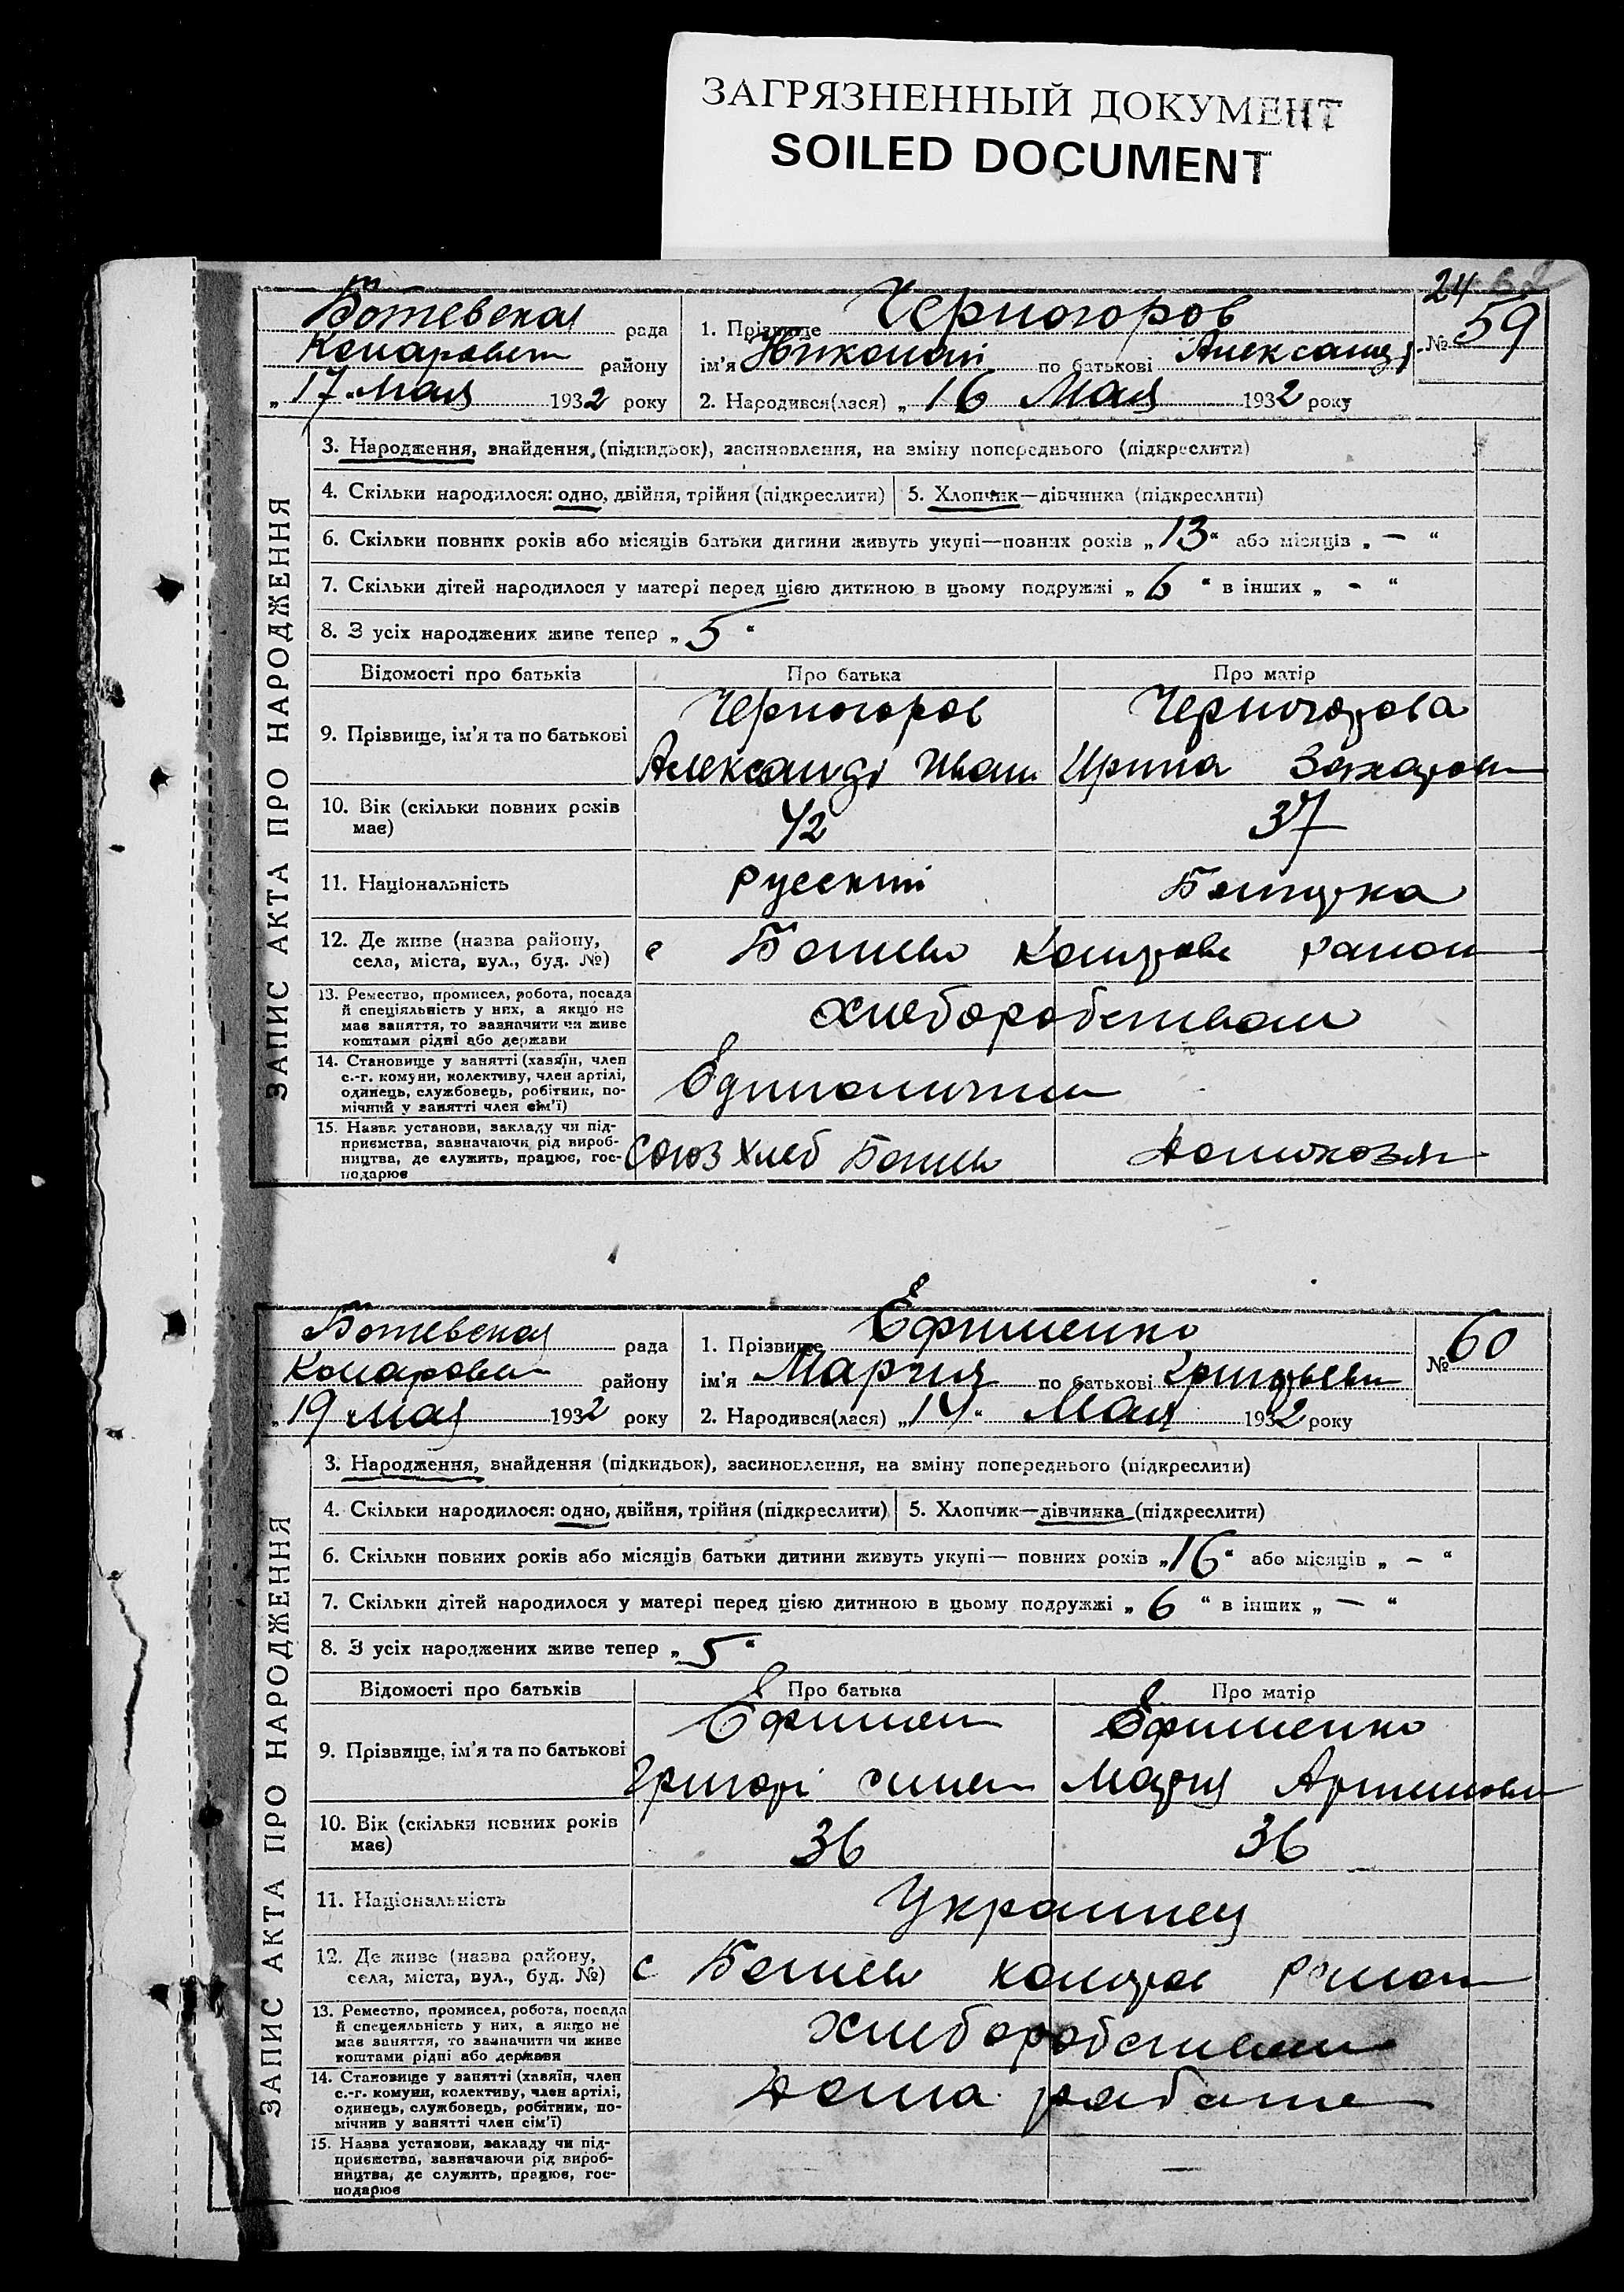 ЗАГРЯЗНЕННЫЙ ДОКУМЕНТ
SOILED DOCUMENT
24
Ботевская рада
1. Прізвище Черногоров
№ 59
району
ім'я по батькові Александр.
„17" Мая 1932 року
2. Народився(лася) „16 Мая 1932 року
ЗАПИС АКТА ПРО НАРОДЖЕННЯ
3. Народження, знайдення, (підкидьок), засиновлення, на зміну попереднього (підкреслити)
4. Скільки народилося: одно, двійня, трійня (підкреслити)
5. Хлопчик—дівчинка (підкреслити)
6. Скільки повних років або місяців батьки дитини живуть укупі—повних років „13" або місяців „ — "
7. Скільки дітей народилося у матері перед цією дитиною в цьому подружжі „ 6 " в інших „ - "
8. З усіх народжених живе тепер „ 5 "
Відомості про батьків Про батька Про матір
9. Прізвище, ім'я та по батькові
Черногоров Черногорова
Александр Иван Ирина Захаров
10. Вік (скільки повних років має)
42 37
11. Національність
русский
12. Де живе (назва району, села, міста, вул., буд. №)
с Ботево район
13. Ремество, промисел, робота, посада й спеціяльність у них, а якщо не має заняття, то зазначити чи живе коштами рідні або держави
14. Становище у занятті (хазяїн, член с.-г. комуни, колективу, член артілі, одинець, службовець, робітник, помічний у занятті член сім'ї)
15. Назва установи, закладу чи підприємства, зазначаючи рід виробництва, де служить, працює, господарює
Союз Хлеб Ботево Домохозя
Ботевская рада
1. Прізвище Ефименко
№ 60
району
ім'я Мария по батькові
„19 мая 1932 року
2. Народився(лася) „14" Мая 1932 року
ЗАПИС АКТА ПРО НАРОДЖЕННЯ
3. Народження, знайдення (підкидьок), засиновлення, на зміну попереднього (підкреслити)
4. Скільки народилося: одно, двійня, трійня (підкреслити)
5. Хлопчик—дівчинка (підкреслити)
6. Скільки повних років або місяців батьки дитини живуть укупі— повних років „16" або місяців „ — "
7. Скільки дітей народилося у матері перед цією дитиною в цьому подружжі „ 6 " в інших „ — "
8. З усіх народжених живе тепер „ 5 "
Відомості про батьків Про батька Про матір
9. Прізвище, ім'я та по батькові
Ефимен Ефименко
Григорі Мария
10. Вік (скільки повних років має)
36 36
11. Національність
Украинец
12. Де живе (назва району, села, міста, вул., буд. №)
с Ботево
13. Ремество, промисел, робота, посада й спецеяльність у них, а якщо не має заняття, то зазначити чи живе коштами рідні або держави
14. Становище у занятті (хазяїн, член с.-г. комуни, колективу, член артілі, одинець, службовець, робітник, помічнив у занятті член сім'ї)
Дома
15. Назва установи, закладу чи підприємства, зазначаючи рід виробництва, де служить, працює, господарює